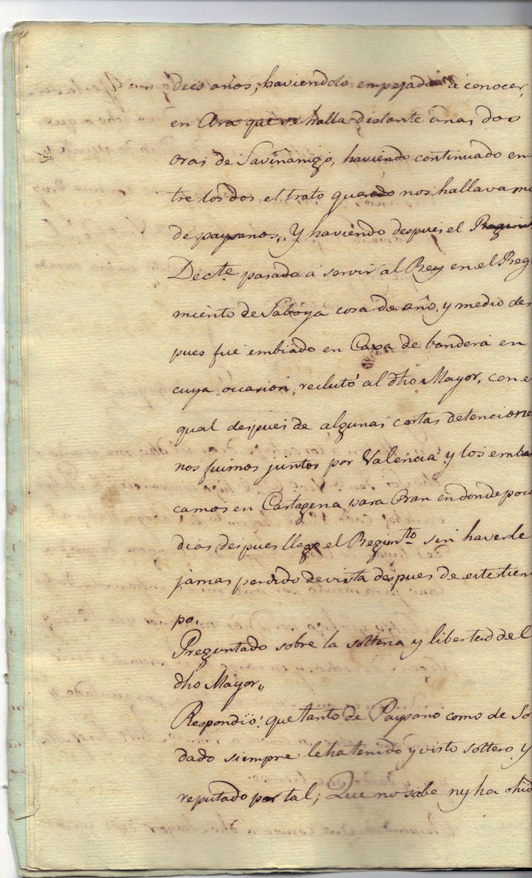 diez años, haviendolo empezado a conocer,
en Ara que se halla distante unas dos
oras de Saviñanigo, haviendo continuado en
tre los dos el trato quando nos hallavamo
de paysanos, Y haviendo despues el
Decte. pasado a servir al Rey en el Reg
miento de Saboya cosa de año, y medio des
pues fue embiado en Caxa de bandera en
cuya ocasion, reclutó al dho Mayor, con e
qual despues de algunas cortas detencione
nos fuimos juntos por Valencia y los emba
camos en Cartagena para Oran en donde poco
dias despues llego el Regimto. sin haverle
jamas perdido de vista despues de este tiem
po.
Preguntado sobre la solteria y libertad del
dho Mayor,,
Respondio: que tanto de Paysano como de So
dado siempre le ha tenido y visto soltero y
reputado por tal; Que no sabe ny ha ohid